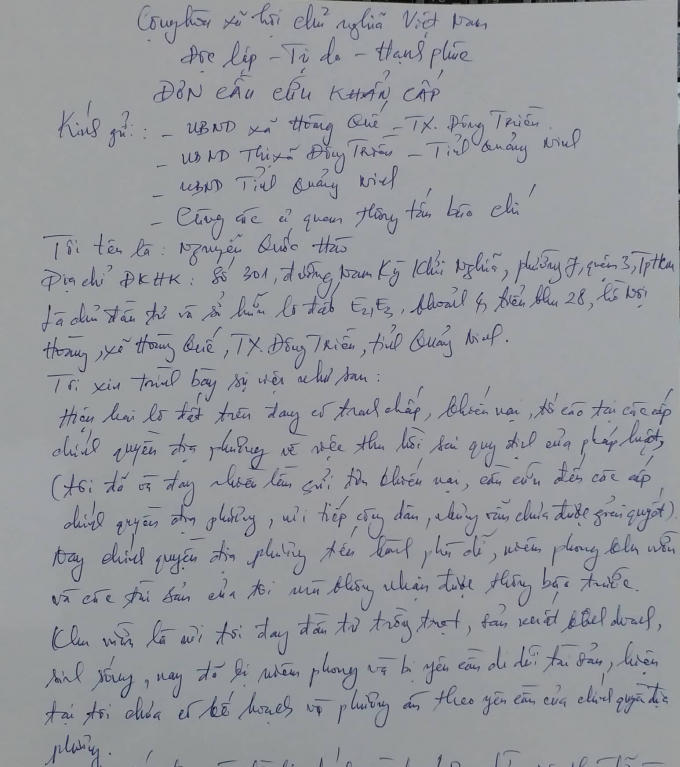 Cộng hòa xã hội chủ nghĩa Việt Nam
Độc lập - Tự do - Hạnh phúc
ĐƠN CẦU CỨU KHẨN CẤP
Kính gửi: - UBND xã Hồng Quế - TX. Đông Triều
- UBND Thị xã Đông Triều - Tỉnh Quảng Ninh
- UBND Tỉnh Quảng Ninh
- Cùng các cơ quan thông tấn báo chí
Tôi tên là: Nguyễn Quốc Hào
Địa chỉ ĐKHK: Số 301, đường Nam Kỳ Khởi Nghĩa, phường 7, quận 3, TpHCM
Là chủ đầu tư và sở hữu lô đất E2, E3, khoảnh 4, tiểu khu 28, Nội
Hoàng, xã Hồng Quế, TX. Đông Triều, tỉnh Quảng Ninh.
Tôi xin trình bày sự việc như sau:
Hiện hai lô đất trên đang có tranh chấp, khiếu nại, tố cáo tại các cấp
chính quyền địa phương về việc thu hồi sai quy định của pháp luật,
(tôi đã và đang nhiều lần gửi đơn khiếu nại, cầu cứu đến các cấp,
chính quyền địa phương, nơi tiếp công dân, nhưng vẫn chưa được giải quyết).
Nay chính quyền địa phương tiến hành phá dỡ, niêm phong khu vườn
và các tài sản của tôi mà không nhận được thông báo trước.
Khu vườn là nơi tôi đang đầu tư trồng trọt, sản xuất kinh doanh,
sinh sống, nay đã bị niêm phong và bị yêu cầu di dời tài sản, hiện
tại tôi chưa có kế hoạch và phương án theo yêu cầu của chính quyền địa
phương.